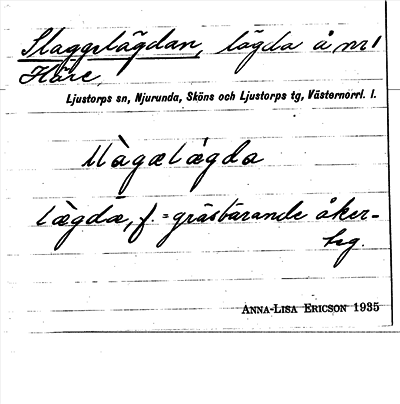 Slaggslägdan, lägda å nr 1
Häre.
Ljustorps sn, Njurunda, Sköns och Ljustorps tg, Västernorrl. l.
lägda, f. = gräsbärande åker-
teg.
ANNA-LISA ERICSON 1935